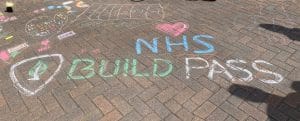 NHS
BUILD PASS